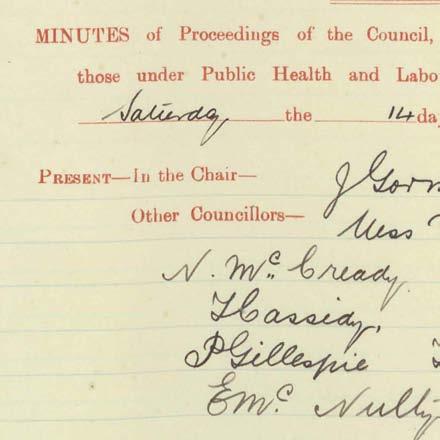 MINUTES of Proceedings of the Council,
those under Public Health and Labo
Saturday the 14 da
PRESENT—In the Chair— J Gorm
Other Councillors—
Mess
N. McCready
T Cassidy,
P Gillespie
E Mc Nulty